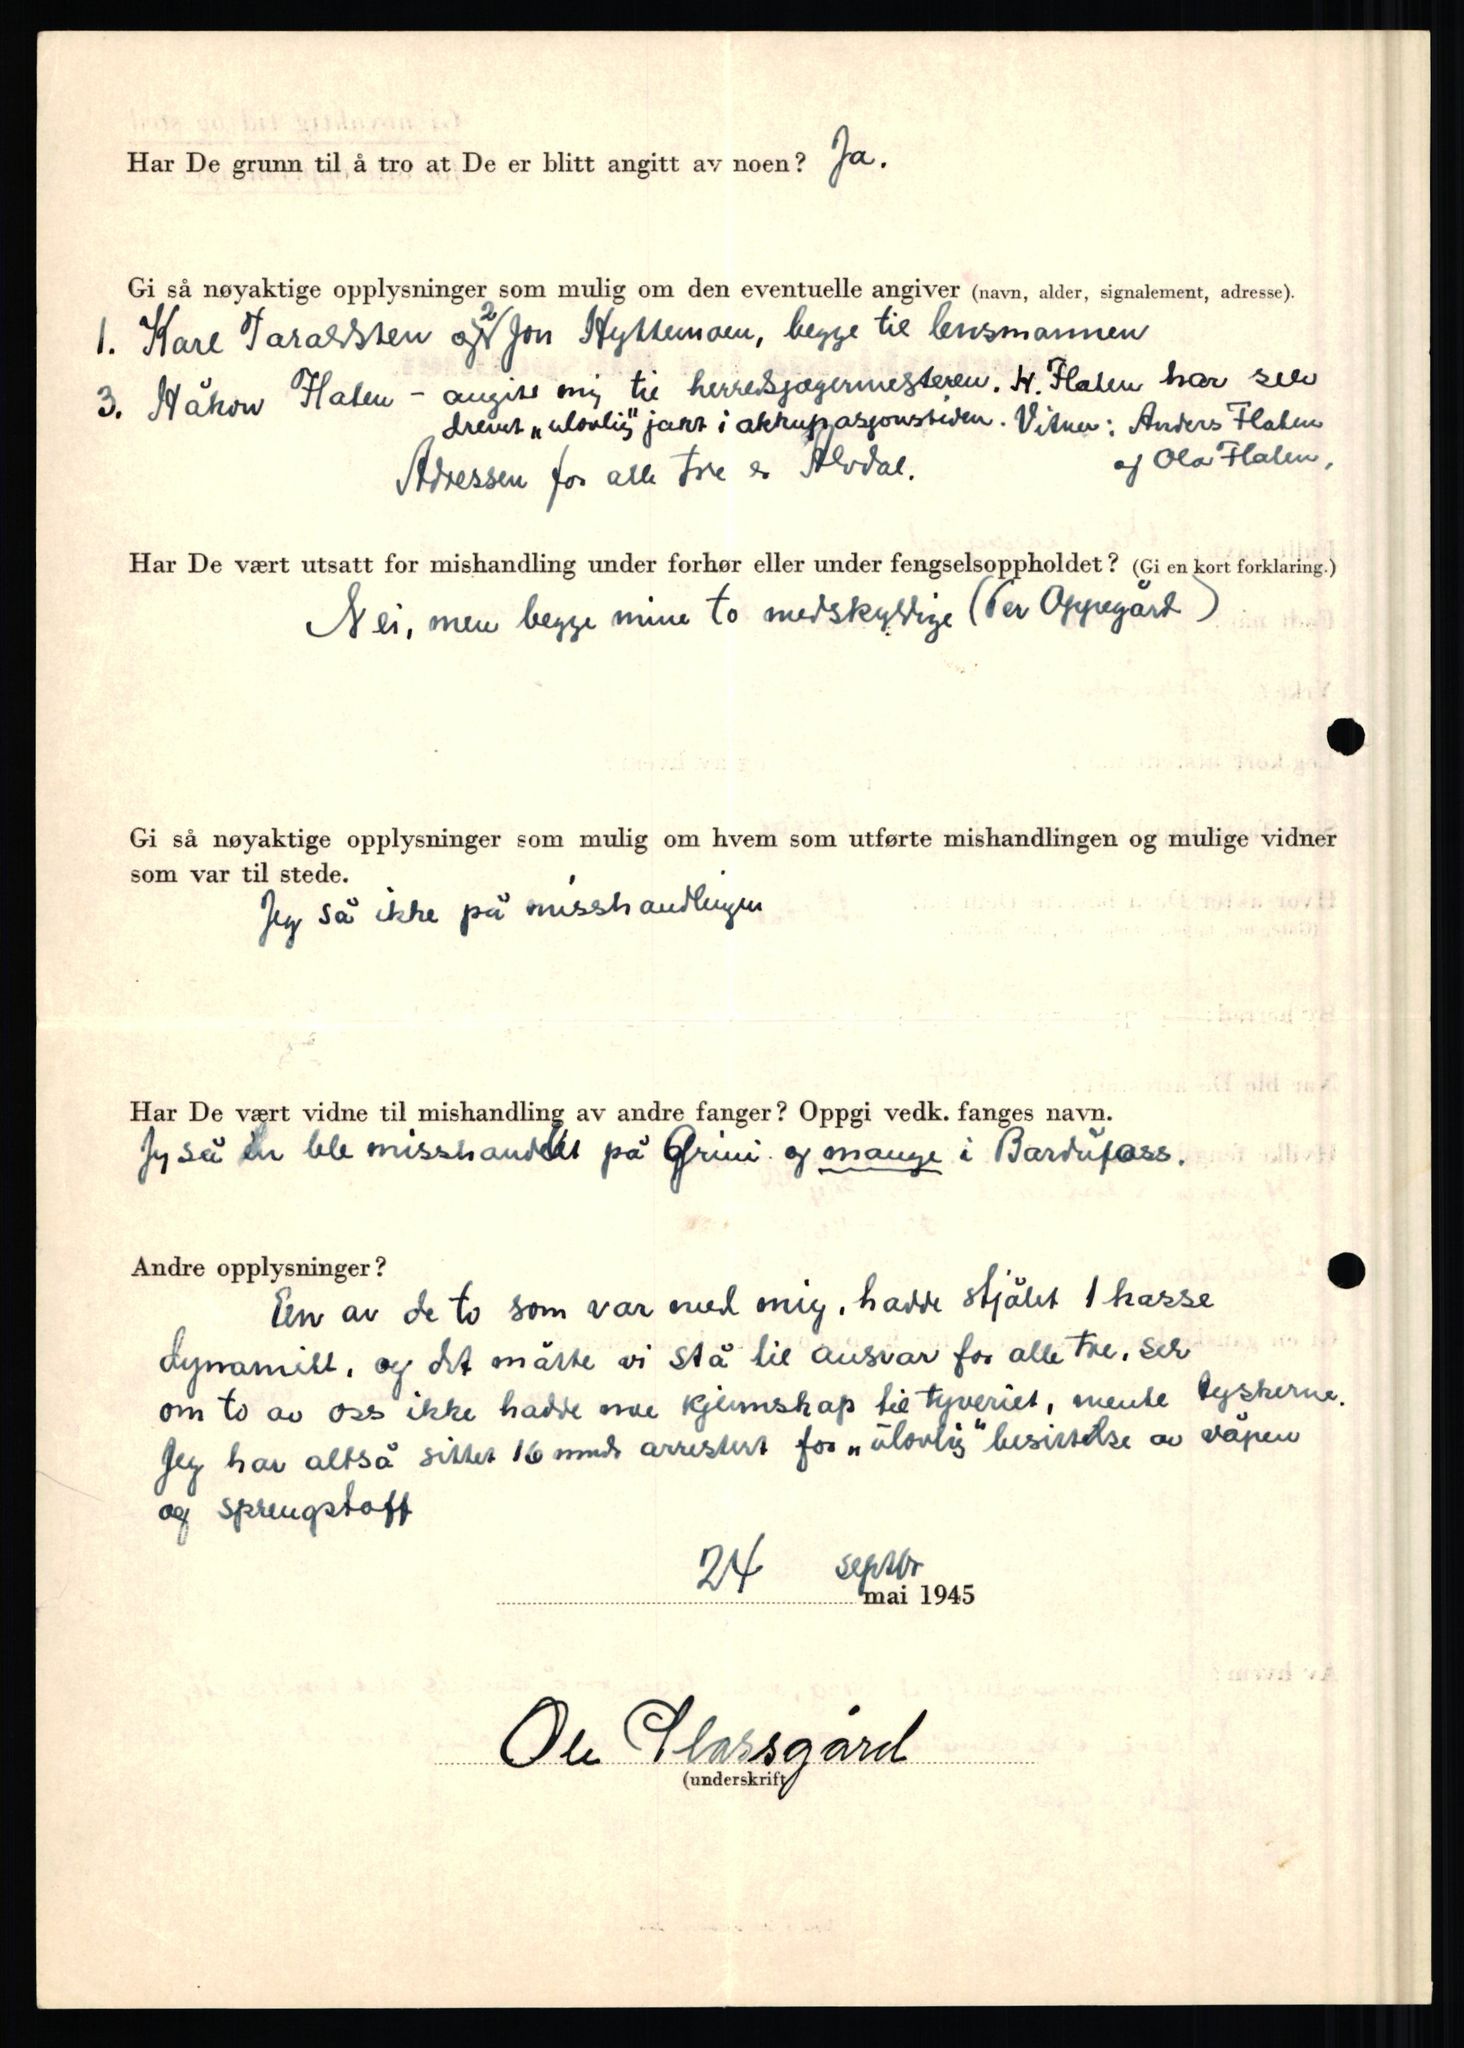 Har De grunn til å tro at De er blitt angitt av noen? Ja.
Gi så nøyaktige opplysninger som mulig om den eventuelle angiver (navn, alder, signalement, adresse).
1. Kare Taraldsten og 2 Jon Hyttemoen, begge til lensmannen
3. Håkon Flaten – angitt mig til herredsjægermesteren. H. Flaten har selv
drevet „ulovlig" jakt i okkupasjonstiden. Vitner: Anders Flaten
og Ola Flaten,
Adressen for alle tre er Alvdal.
Har De vært utsatt for mishandling under forhør eller under fengselsoppholdet? (Gi en kort forklaring.)
Nei, men begge mine to medskyldige (Per Oppegård)
Gi så nøyaktige opplysninger som mulig om hvem som utførte mishandlingen og mulige vidner
som var til stede.
Jeg så ikke på misshandlingen
Har De vært vidne til mishandling av andre fanger? Oppgi vedk. fanges navn.
Jeg så en ble misshandlet på Grini og mange i Bardufoss.
Andre opplysninger?
En av de to som var med mig, hadde stjålet 1 kasse
dynamitt, og det måtte vi stå til ansvar for alle tre, selv
om to av oss ikke hadde noe kjennskap til tyveriet, mente tyskerne.
Jeg har altså sittet 16 mndr arrestert for „ulovlig" besittelse av våpen
og sprengstoff
24 septbr
mai 1945
Ole Plassgård
(underskrift)